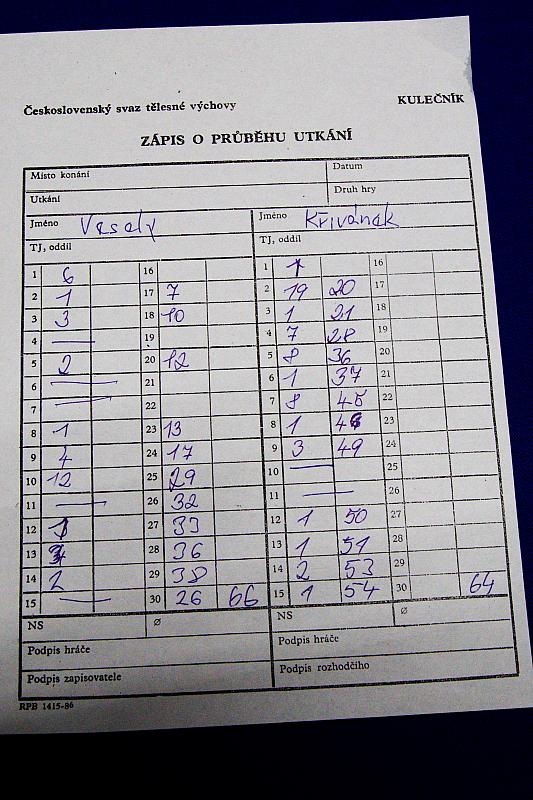 Československý svaz tělesné výchovy KULEČNÍK
ZÁPIS O PRŮBĚHU UTKÁNÍ
Místo konání Datum
Utkání Druh hry
Jméno Veselý Jméno Křivánek
TJ, oddíl TJ, oddíl
1 6 16 1 1 16
2 1 17 7 2 19 20 17
3 3 18 10 3 1 21 18
4 — 19 4 7 28 19
5 2 20 12 5 8 36 20
6 — 21 6 1 37 21
7 — 22 7 8 45 22
8 1 23 13 8 1 46 23
9 4 24 17 9 3 49 24
10 12 25 29 10 — 25
11 — 26 32 11 — 26
12 1 27 33 12 1 50 27
13 28 36 13 1 51 28
14 2 29 38 14 2 53 29
15 — 30 26 66 15 1 54 30 64
NS Ø NS Ø
Podpis hráče Podpis hráče
Podpis zapisovatele Podpis rozhodčího
RPB 1415-86